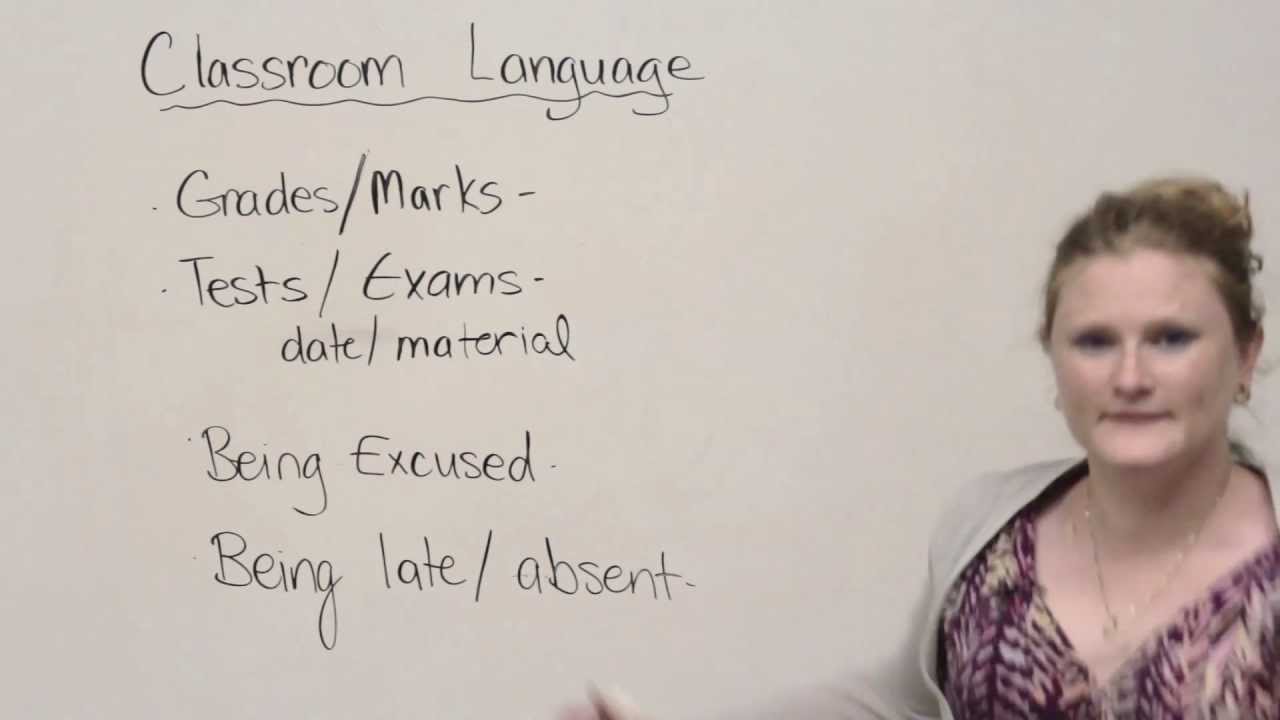 Classroom Language
· Grades/Marks -
· Tests/ Exams -
date/ material
· Being Excused.
· Being late/ absent -